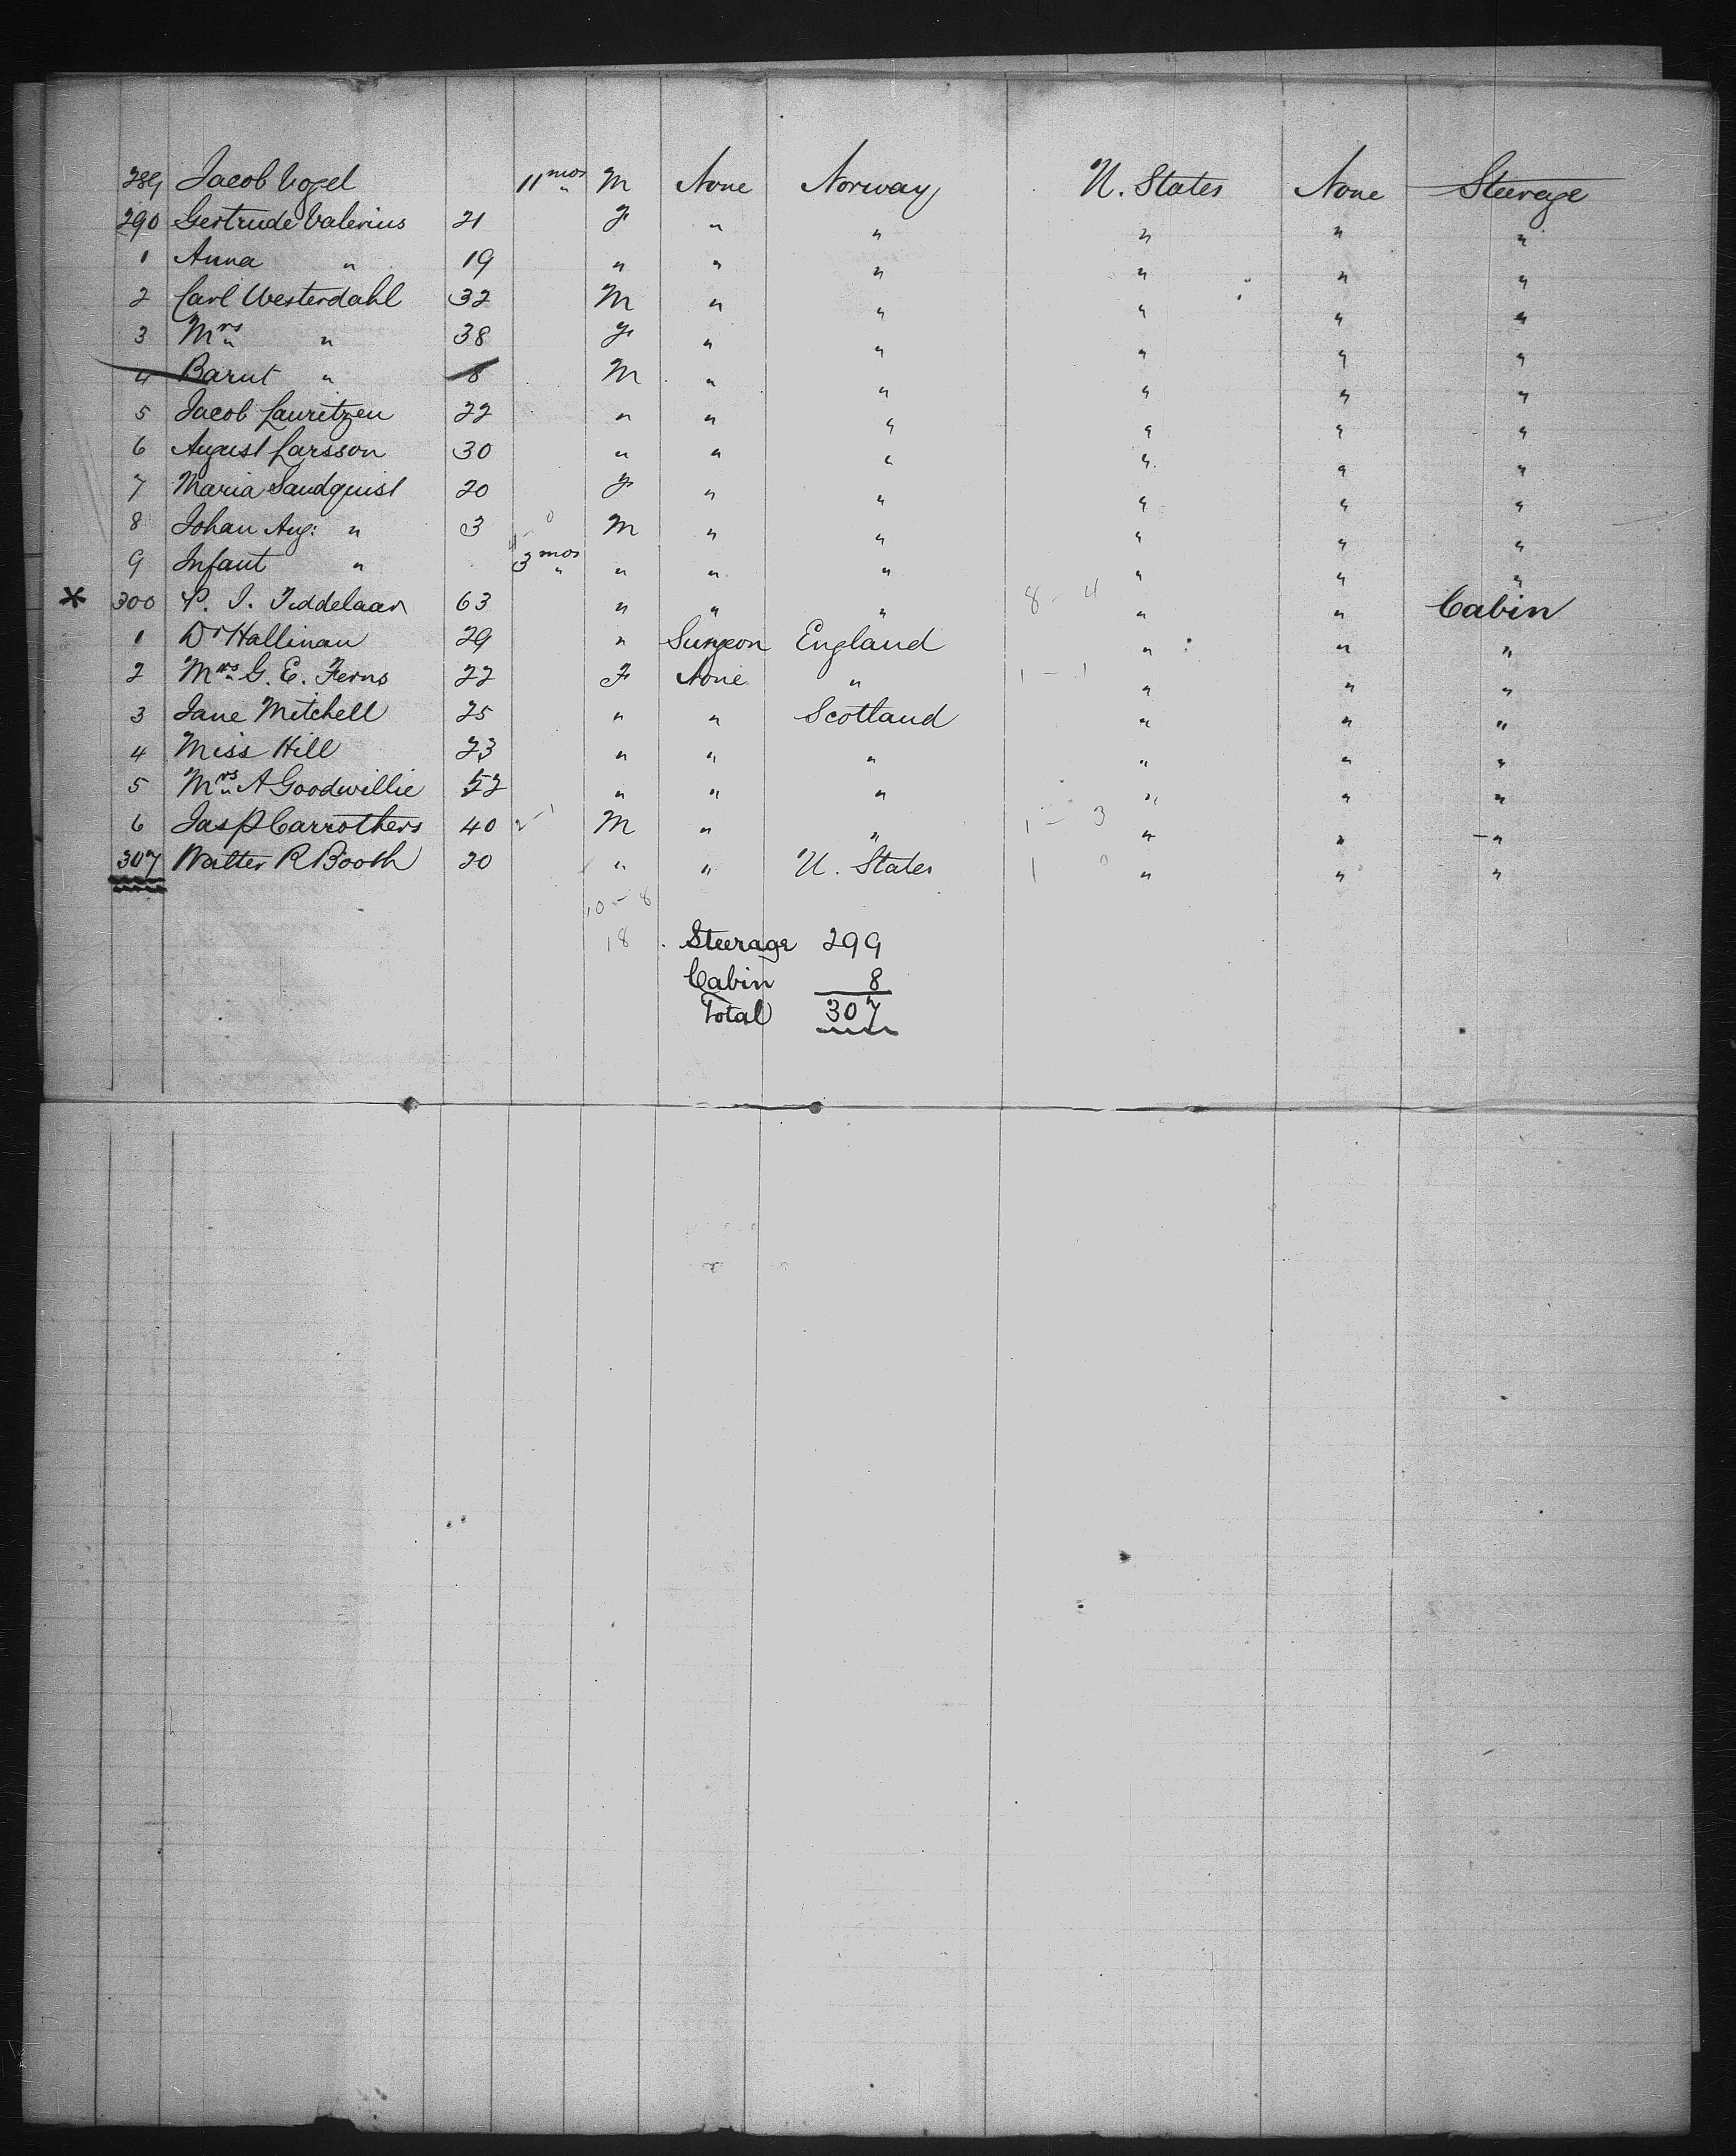 289 Jacob Vogel 11 mos M None Norway U. States None Steerage
290 Gertrude Valerius 21 F " " " " "
1 Anna " 19 " " " " " "
2 Carl Westerdahl 32 M " " " " "
3 Mrs " 38 F " " " " "
4 Barut " 8 M " " " " "
5 Jacob Lauritzen 22 " " " " " "
6 August Larsson 30 " " " " " "
7 Maria Sandquist 20 F " " " " "
8 Johan Aug: " 3 M " " " " "
9 Infant " 3 mos " " " " " "
* 300 P. I. Tiddelaar 63 " " " 8 - 4 " " Cabin
1 Dr Hallinan 29 " Surgeon England " " "
2 Mrs G. E. Ferns 22 F None " 1 - 1 " " "
3 Jane Mitchell 25 " " Scotland " " "
4 Miss Hill 23 " " " " " "
5 Mrs A Goodwillie 52 " " " " " "
6 Jas P Carrothers 40 2 - 1 M " " 1 - 3 " " "
307 Walter R Booth 20 " " U. States 1 0 " " "
10 - 8
18 Steerage 299
Cabin 8
Total 307